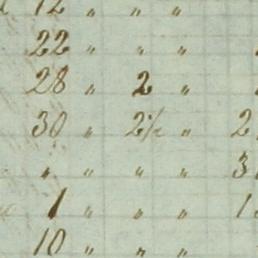 12 " " "
22 " " "
28 " 2 "
30 " 2½ " 2
" " " " 3
1 " " " 1
10 " " "